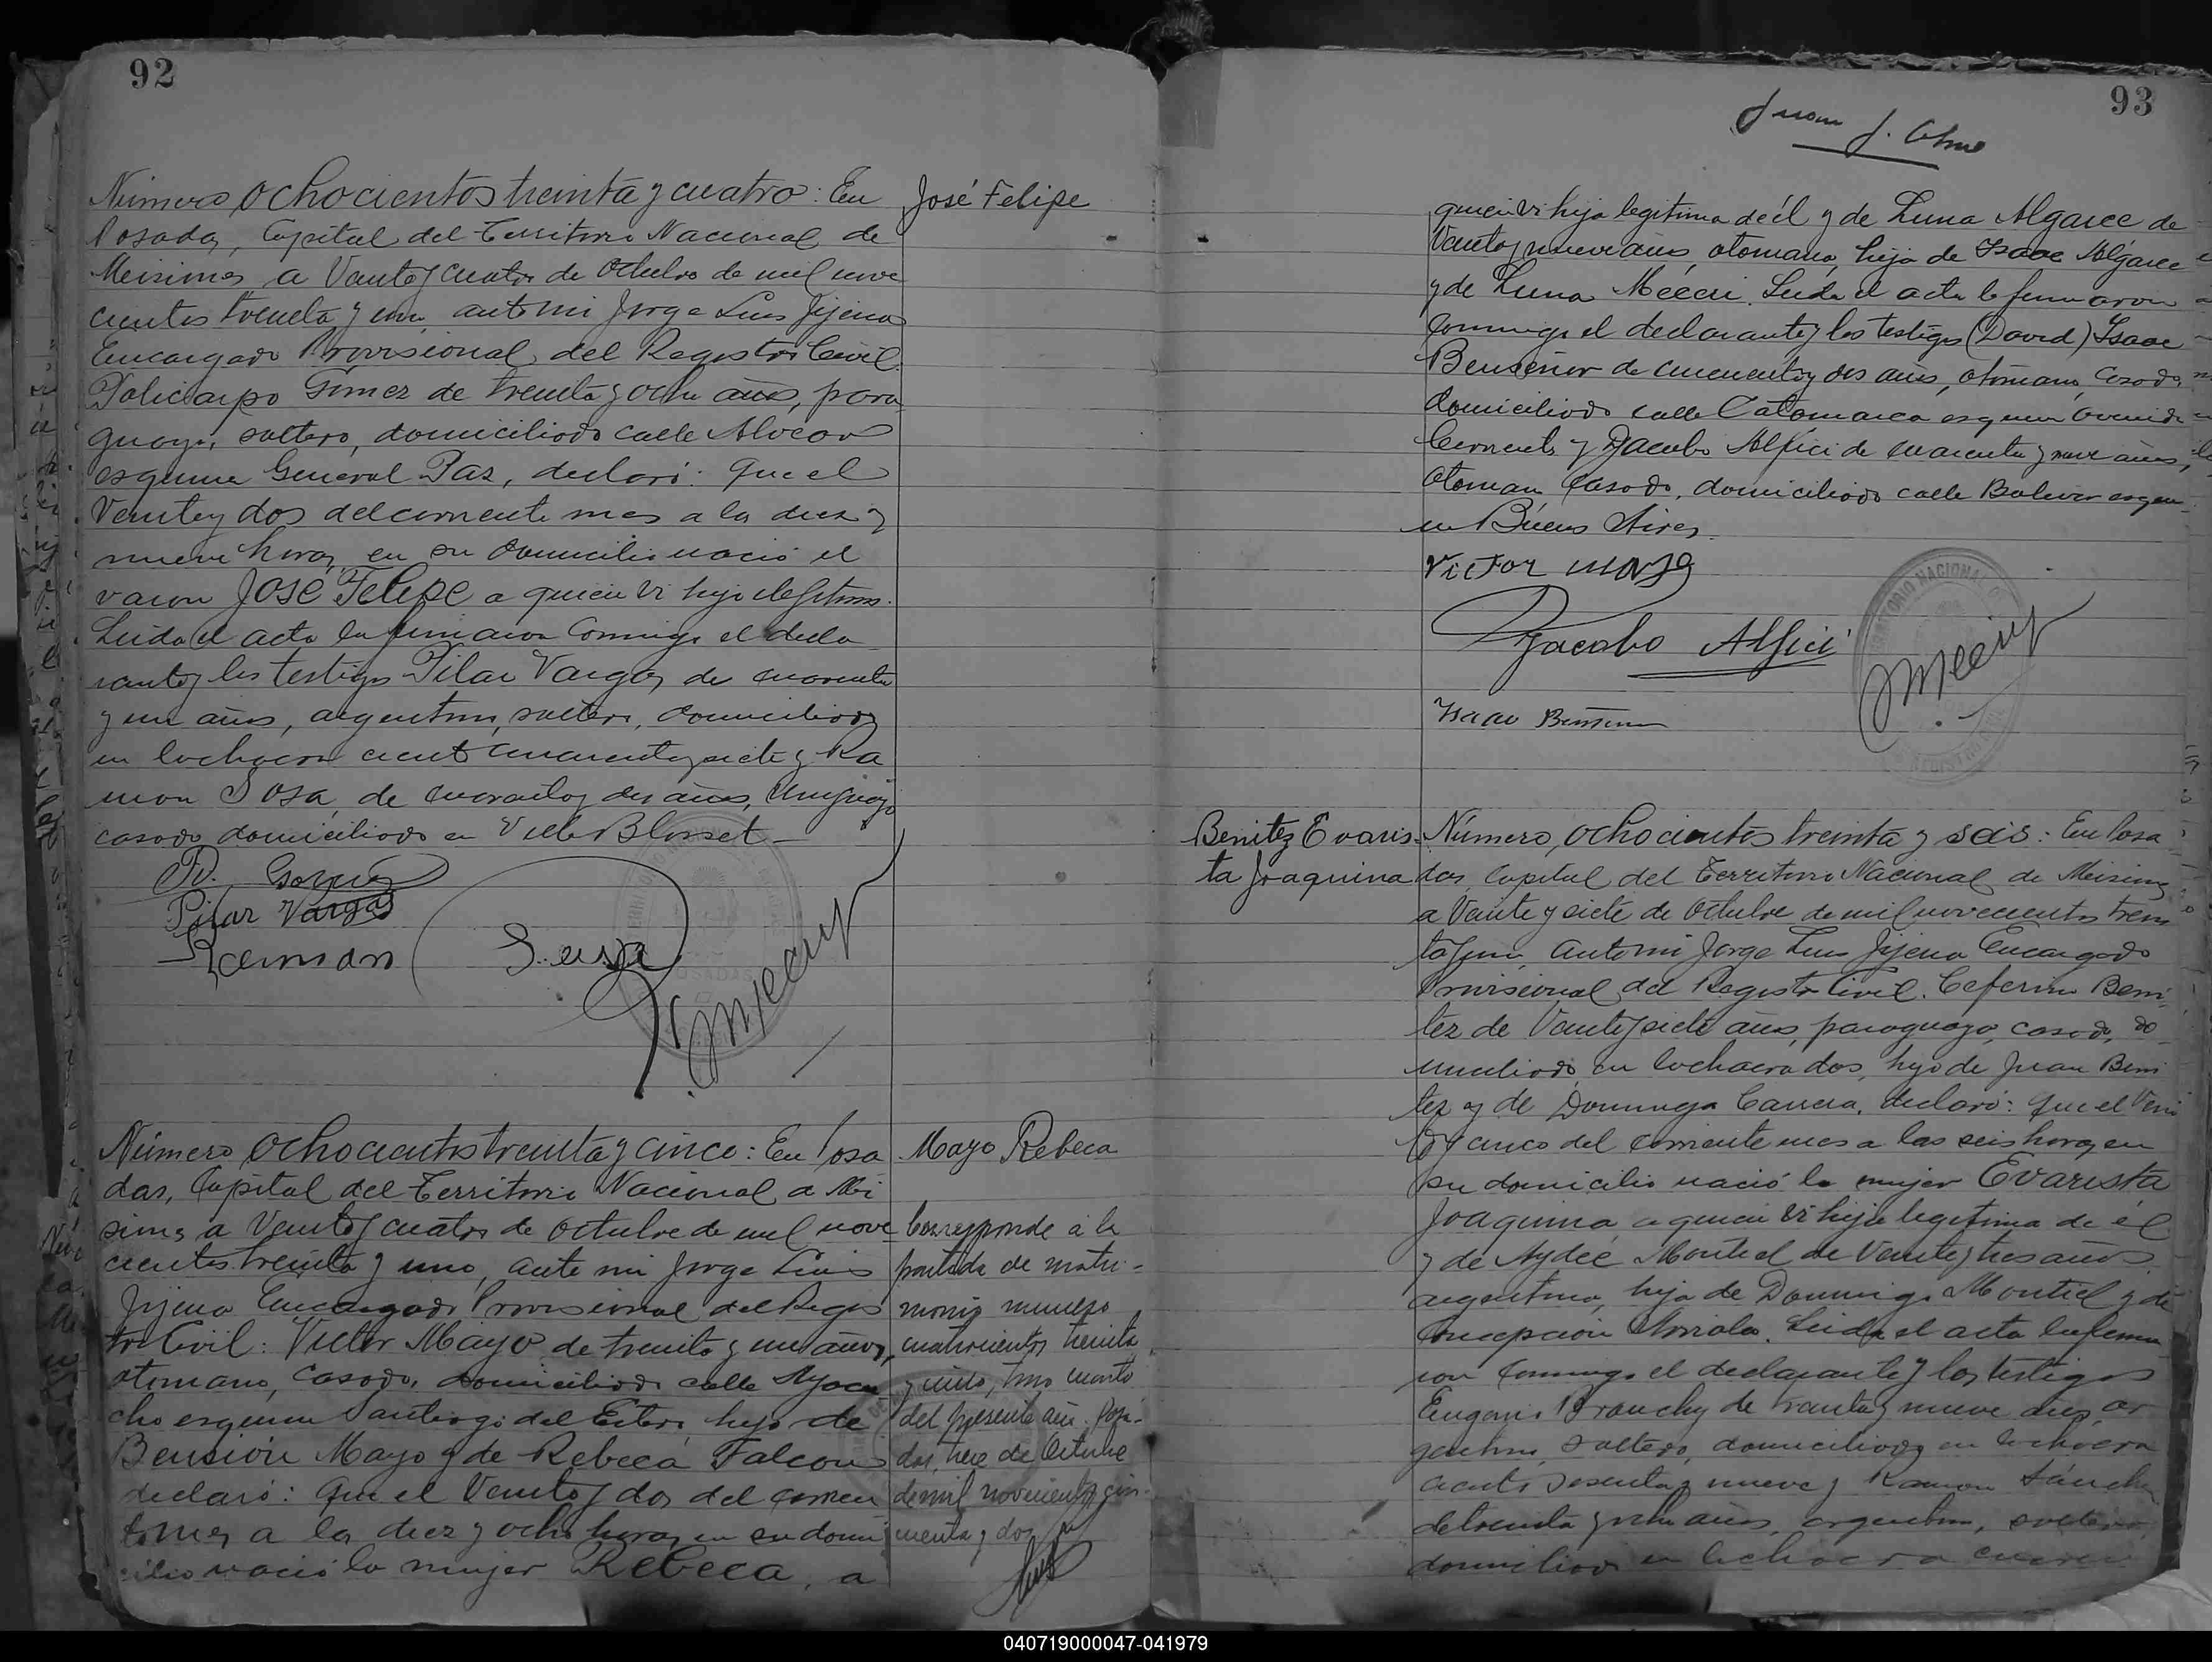 92
Número ochocientos treinta y cuatro: En
José Felipe
Posadas, Capital del Territorio Nacional de
Misiones, a Veinte y cuatro de Octubre de mil nove
cientos treinta y uno, ante mi Jorge Luis Jijena
Encargado Provisional del Registro Civil.
Policarpo Gómez de treinta y ocho años, para
guayo, soltero, domiciliado calle Alvear
esquina General Paz, declaró: que el
Veinte y dos del corriente mes a las diez y
nueve horas, en su domicilio nació el
varon José Felipe a quien vi hijo ilegítimo.
Leida el acta la firmaron conmigo el decla
rante y los testigos Pilar Vargas, de cuarenta
y un años, argentino, soltero, domiciliado
en lochacra ciento cincuenta y siete y Ra
mon Sosa, de cuarenta y dos años, Uruguayo
casado, domiciliado en Villa Blosset
Pilar Vargas
Número ochocientos treinta y cinco: En Posa
Mayo Rebeca
das, Capital del Territorio Nacional de Mi
siones, a Veinte y cuatro de Octubre de mil nove
cientos treinta y uno, ante mi Jorge Luis
Jijena Encargado Provisional del Regis
tro Civil: Victor Mayo de treinta y un años,
otomano, casado, domiciliado calle Ayacu
cho esquina Santiago del Estero, hijo de
Bensión Mayo y de Rebeca Falcon
declaró: que el Veinte y dos del corrien
te mes a las diez y ocho horas, en su domi
cilio nació la mujer Rebeca, a
Corresponde a la
partida de matri-
monio numero
cuatrocientos treinta
y cinco, tomo cuarto
del presente año. Posa-
das, trece de Octubre
de mil novecientos cin-
cuenta y dos
93
Juan J.
quien vi hija legítima de él y de Luna Algaree de
Veinte y nueve años, otomana, hija de Isaac Algaree
y de Luna Meeri. Leida el acta la firmaron
conmigo el declarante y los testigos (David) Isaac
Benseñor de cincuenta y dos años, otomano, casado,
domiciliado calle Catamarca esquina Avenida
Corrientes y Jacobo Alfici de cuarenta y nueve años,
otomano, casado, domiciliado calle Bolivar esqui
na Buenos Aires.
Victor
Jacobo Alfici
Isaac
Benitez Evaris-
ta Joaquina
Número, ochocientos treinta y seis: En Posa
das, Capital del Territorio Nacional de Misiones
a Veinte y siete de Octubre de mil novecientos trein
ta y uno, ante mi Jorge Luis Jijena Encargado
Provisional del Registro Civil. Ceferino Beni
tez de Veinte y siete años, paraguayo, casado, do
miciliado en lochacra dos, hijo de Juan Beni
tez y de Dominga Carrera, declaró: que el Vein
te y cinco del corriente mes a las seis horas, en
su domicilio nació la mujer Evarista
Joaquina, a quien vi hija legítima de él
y de Aydeé Montiel de Veinte y tres años
argentina, hija de Domingo Montiel y de
Concepción. Leida el acta la firma
ron conmigo el declarante y los testigos
Eugenio Branchy de treinta y nueve años, ar
gentino, soltero, domiciliado en lochacra
ciento sesenta y nueve y Ramon Sánchez
de treinta y ocho años, argentino, soltero
domiciliado en lochacra
040719000047-041979